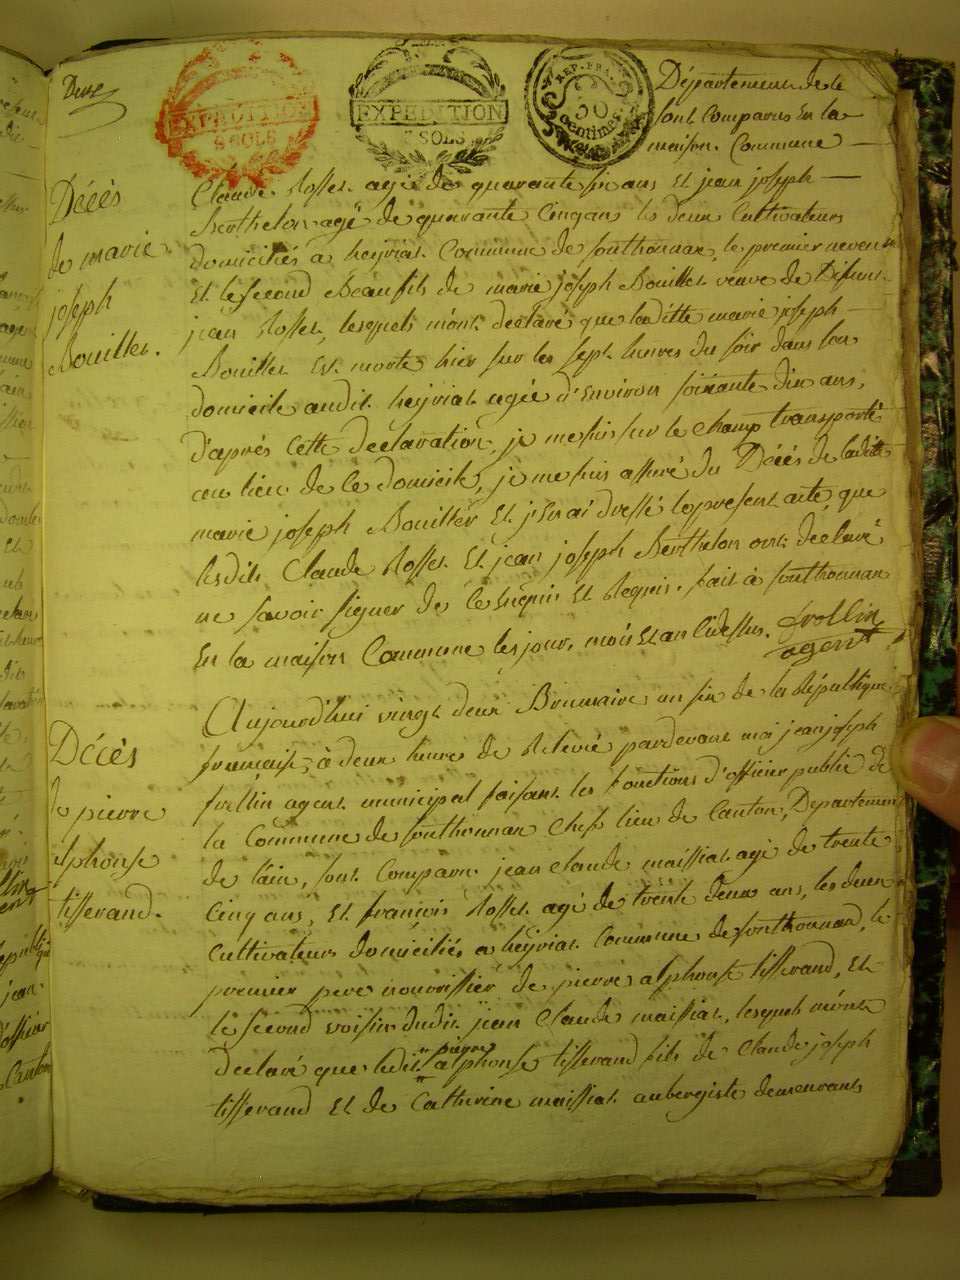 Deux
EXPEDITION
8 SOLS
EXPEDITION
SOLS
REP. FRA.
50
centimes
Département de l'e
sont Comparus En la
maison Commune
Décés
de marie
joseph
Bouillet.
Claude Rosset agé de quarante six ans Et jean joseph
Berthelon agé de quarante Cinq ans les deux Cultivateurs
domiciliés à heyriat Commune de sonthonnax, le premier neveu
Et le second Beaufils de marie joseph Bouillet veuve de Défunt
jean Rosset, lesquels m'ont déclaré que laditte marie joseph
Bouillet Est morte hier sur les sept heures du soir dans son
domicile audit heyriat agée d'Environ soixante dix ans,
d'aprés Cette déclaration, je me suis sur le champ transporté
au lieu de Ce domicile, je me suis assuré du Décés de laditte
marie joseph Bouillet Et j'En ai dressé le présent acte, que
lesdits Claude Rosset Et jean joseph Berthelon ont déclaré
ne savoir signer de Ce Enquis Et Requis. fait à sonthonnax
En la maison Commune les jour, mois Et an susdessus. frollin
agent
Décés
de pierre
alphonse
tisserand.
Aujourd'hui vingt deux Brumaire an six de la République
française, à deux heure de Relevée pardevant moi jean joseph
frollin agent municipal faisant les fonctions d'officier public de
la Commune de sonthonnax Chef lieu de Canton, Département
de l'ain, sont Comparu jean Claude maissiat agé de trente
Cinq ans, Et françois Rosset agé de trente deux ans, les deux
Cultivateurs domiciliés a heyriat Commune de sonthonnax, le
premier pere nourrissier de pierre alphonse tisserand, Et
le second voisin dudit jean Claude maissiat, lesquels m'ont
pierre
déclaré que ledit alphonse tisserand fils de Claude joseph
tisserand Et de Catherine maissiat aubergiste demeurants